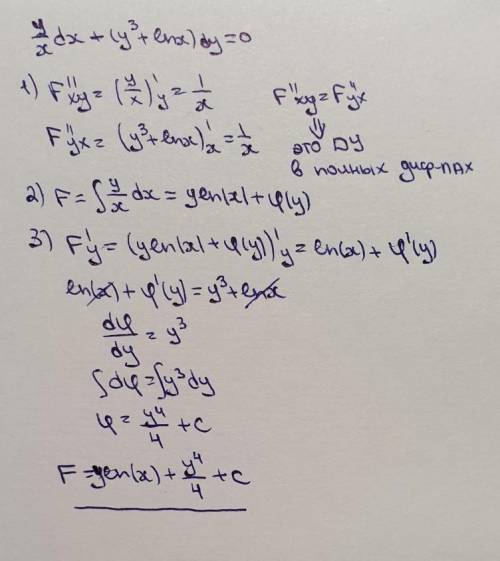 y/x dx + (y³ + lnx) dy = 0
1) F''xy = (y/x)'y = 1/x
F''xy = F''yx
F''yx = (y³ + lnx)'x = 1/x
⇓
это ДУ
в полных диф-лах
2) F = ∫ y/x dx = yln|x| + φ(y)
3) F'y = (yln|x| + φ(y))'y = ln(x) + φ'(y)
ln(x) + φ'(y) = y³ + lnx
dφ/dy = y³
∫dφ = ∫y³dy
φ = y⁴/4 + C
F = yln(x) + y⁴/4 + C